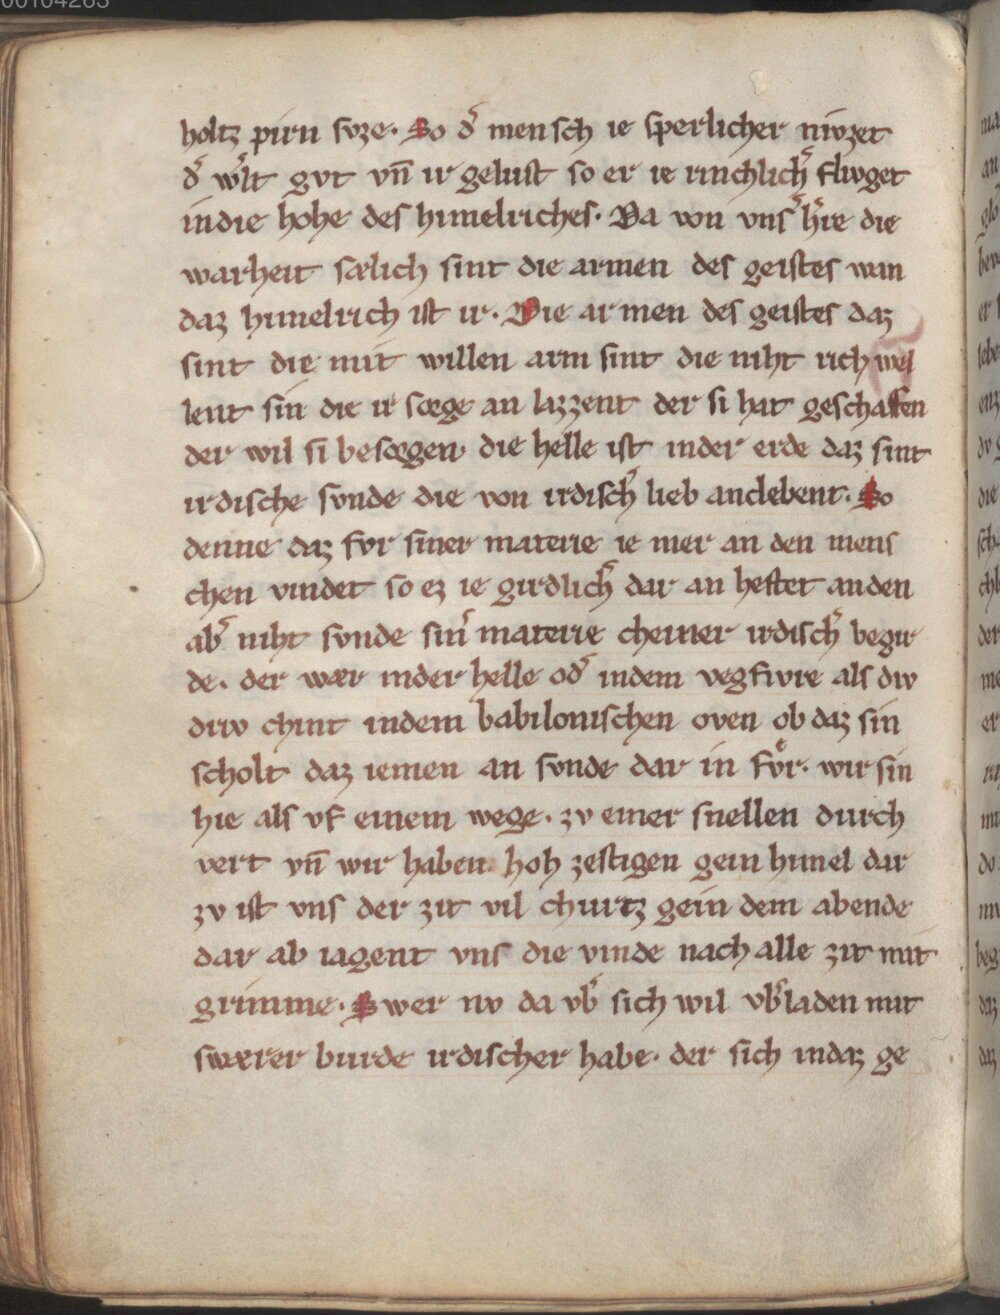 holtz pirn svze. So d̾ mensch ie sperlicher nivzet
d̾ w̾lt gvt vn̄ ir gelust so er ie rinchlich̾ flivget
in die hohe des himelriches. Da von vns̾ h̾re die
warheit sælich sint die armen des geistes wan
daz himelrich ist ir. Die armen des geistes daz
sint die mit willen arm sint die niht rich wel
lent sin die ir sorge an lazzent der si hat geschaffen
der wil si besorgen. die helle ist inder erde daz sint
irdische svnde die von irdisch̾ lieb anclebent. So
denne daz fvr siner materie ie mer an den mens
chen vindet so ez ie girdlich̾ dar an heftet an den
ab̾ niht svnde sin̾ materie cheiner irdisch̾ begir
de. der wær inder helle od̾ indem vegfivre als div
driv chint indem babilonischen oven ob daz sin
scholt daz iemen an svnde dar in fvͤr. wir sin
hie als vf einem wege. zv einer snellen durch
vert vn̄ wir haben hoh zestigen gein himel dar
zv ist vns der zit vil churtz gein dem abende
dar ab iagent vns die vinde nach alle zit mit
grimme. Swer nv da vb̾ sich wil vb̾laden mit
swærer burde irdischer habe. der sich indaz ge